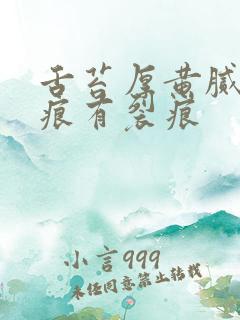 舌苔厚黄腻
痕有裂痕
小言999
未经同意禁止转载